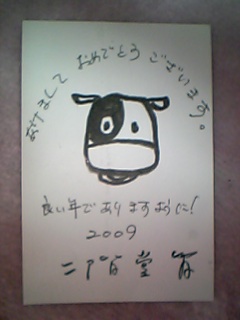 あけまして おめでとう ございます。
良い年でありますように!
2009
二階堂